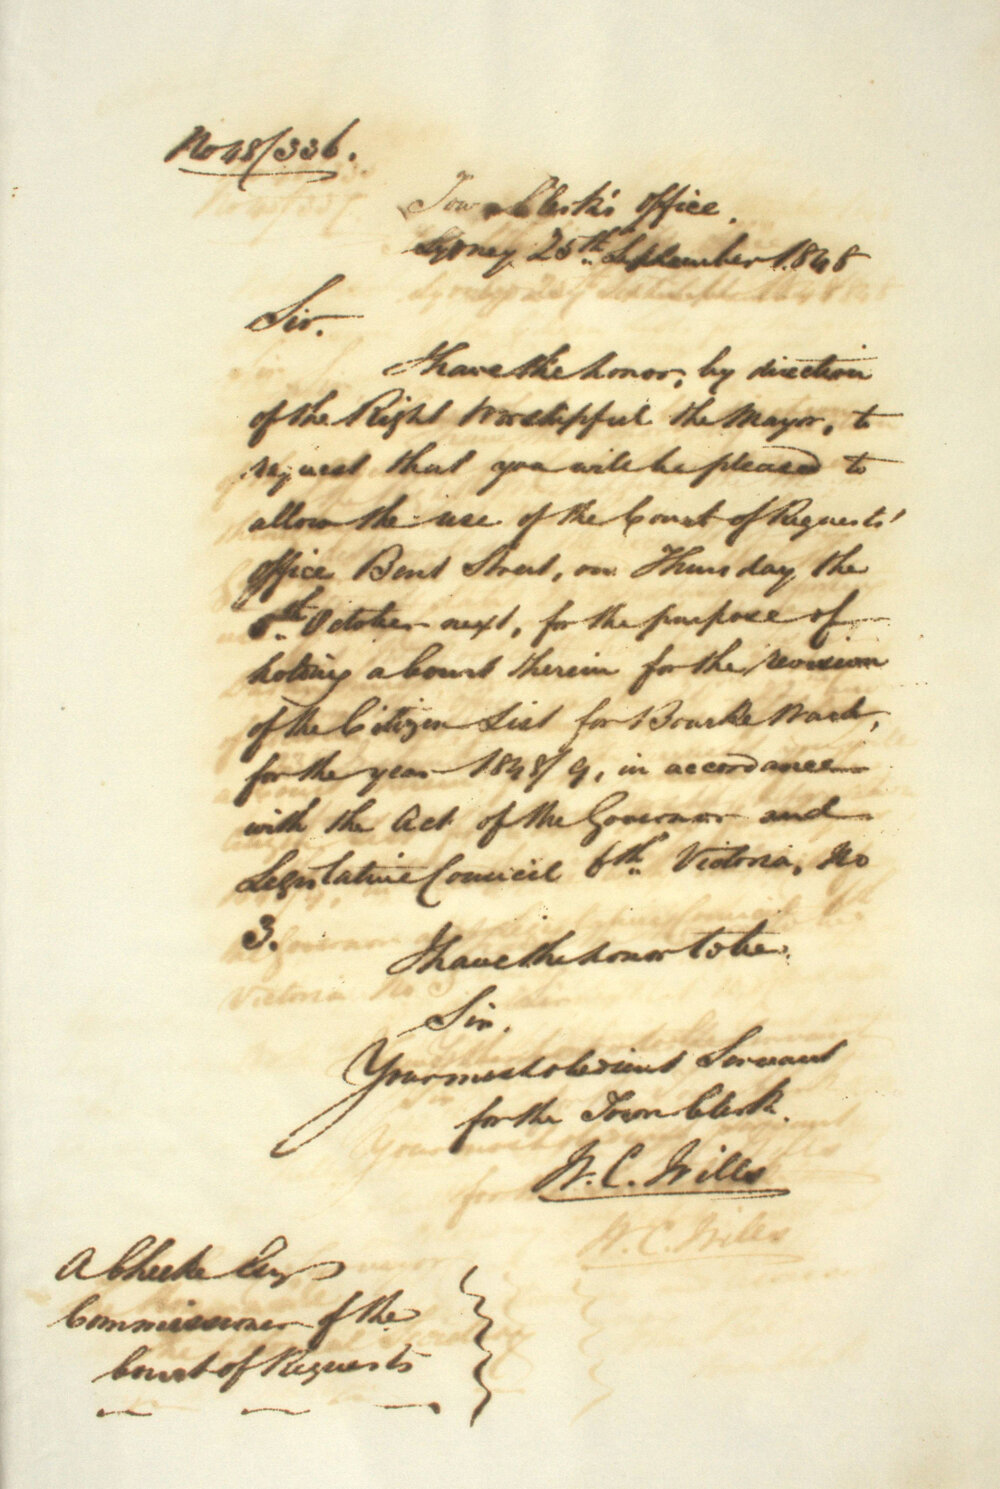 No 48/336.
Town Clerk's Office.
Sydney 25th September 1848
Sir.
I have the honor, by direction
of the Right Worshipful the Mayor, to
request that you will be pleased to
allow the use of the Court of Requests'
Office Bent Street, on Thursday the
5th October next, for the purpose of
holding a Court therein for the revision
of the Citizen List for Bourke Ward,
for the year 1848/9, in accordance
with the Act of the Governor and
Legislative Council 6th Victoria, No
3.
I have the honor to be.
Sir.
Your most obedient Servant
for the Town Clerk.
W. C. Wills
A Cheeke Esq
Commissioner of the
Court of Requests